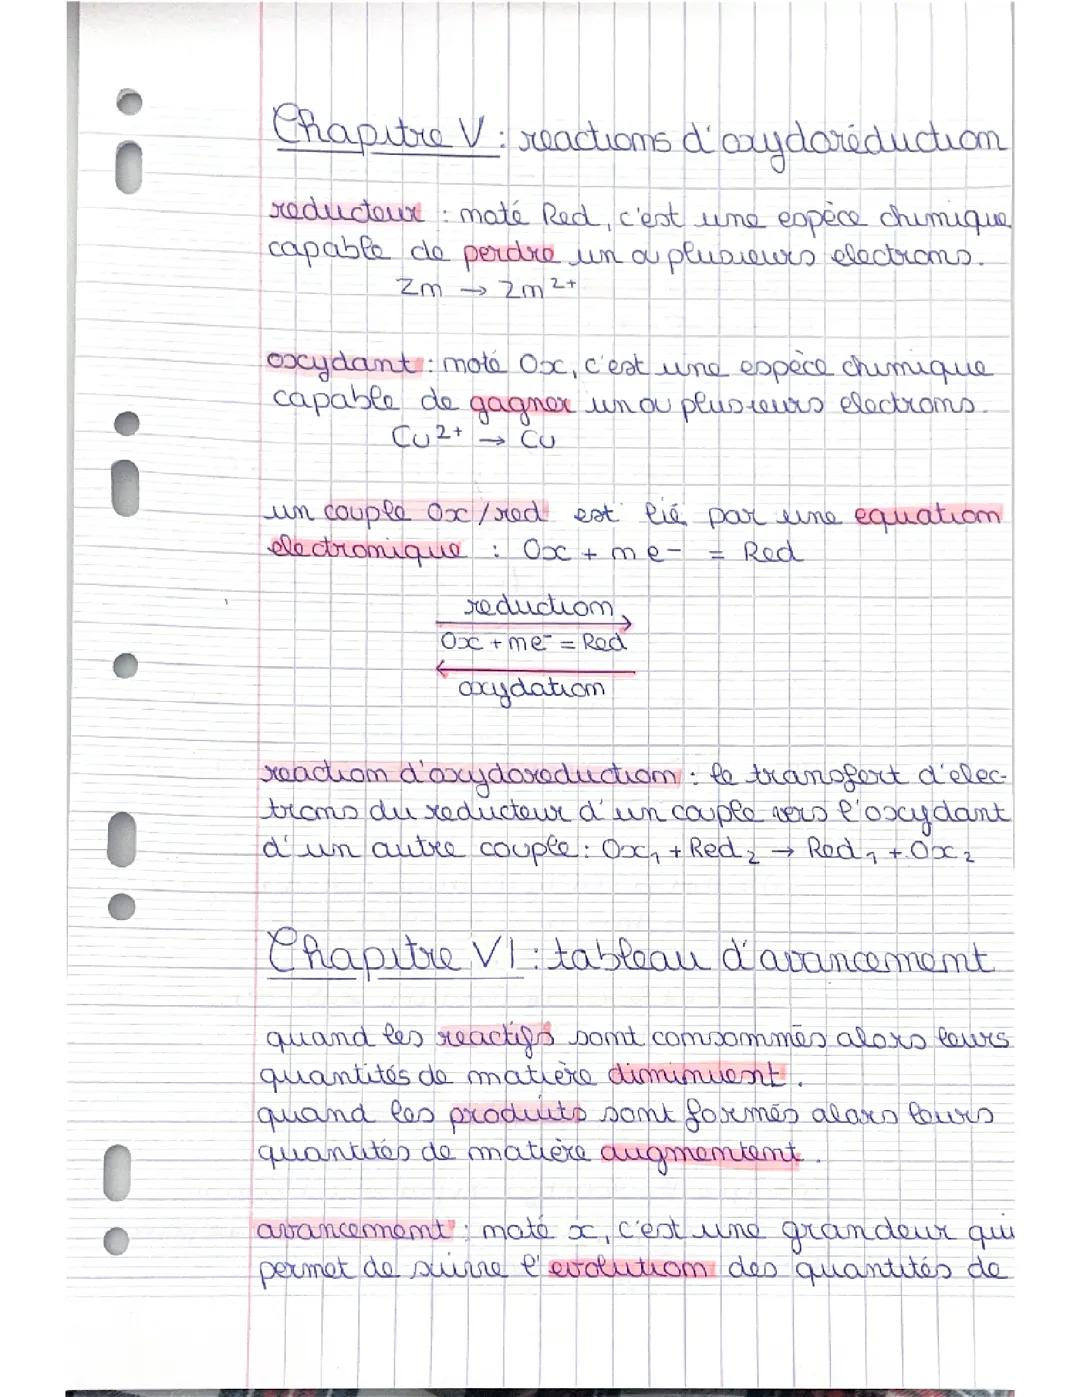 Chapitre V : reactions d'oxydoréduction
reducteur : noté Red, c'est une espèce chimique
capable de perdre un ou plusieurs electrons.
Zn → Zn²⁺
oxydant : noté Ox, c'est une espèce chimique
capable de gagner un ou plusieurs electrons.
Cu²⁺ → Cu
un couple Ox/red est lié par une equation
electronique : Ox + n e- = Red
reduction
Ox + ne⁻ = Red
oxydation
reaction d'oxydoreduction : le transfert d'elec-
trons du reducteur d'un couple vers l'oxydant
d'un autre couple : Ox₁ + Red₂ → Red₁ + Ox₂
Chapitre VI : tableau d'avancement
quand les reactifs sont consommés alors leurs
quantités de matière diminuent.
quand les produits sont formés alors leurs
quantités de matière augmentent.
avancement : noté x, c'est une grandeur qui
permet de suivre l'evolution des quantités de